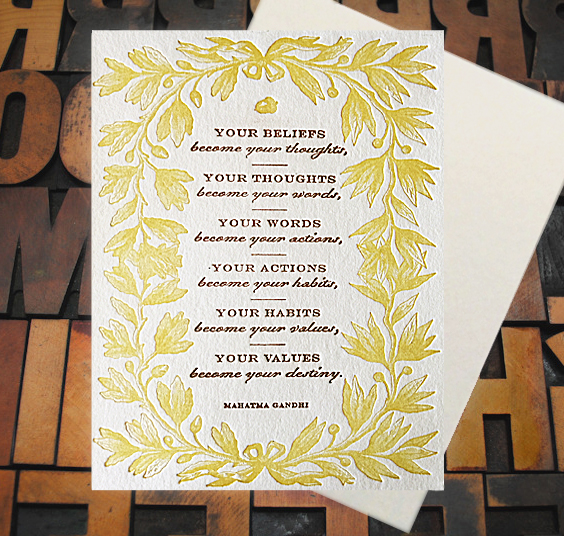 YOUR BELIEFS
become your thoughts,
YOUR THOUGHTS
become your words,
YOUR WORDS
become your actions,
YOUR ACTIONS
become your habits,
YOUR HABITS
become your values,
YOUR VALUES
become your destiny.
MAHATMA GANDHI